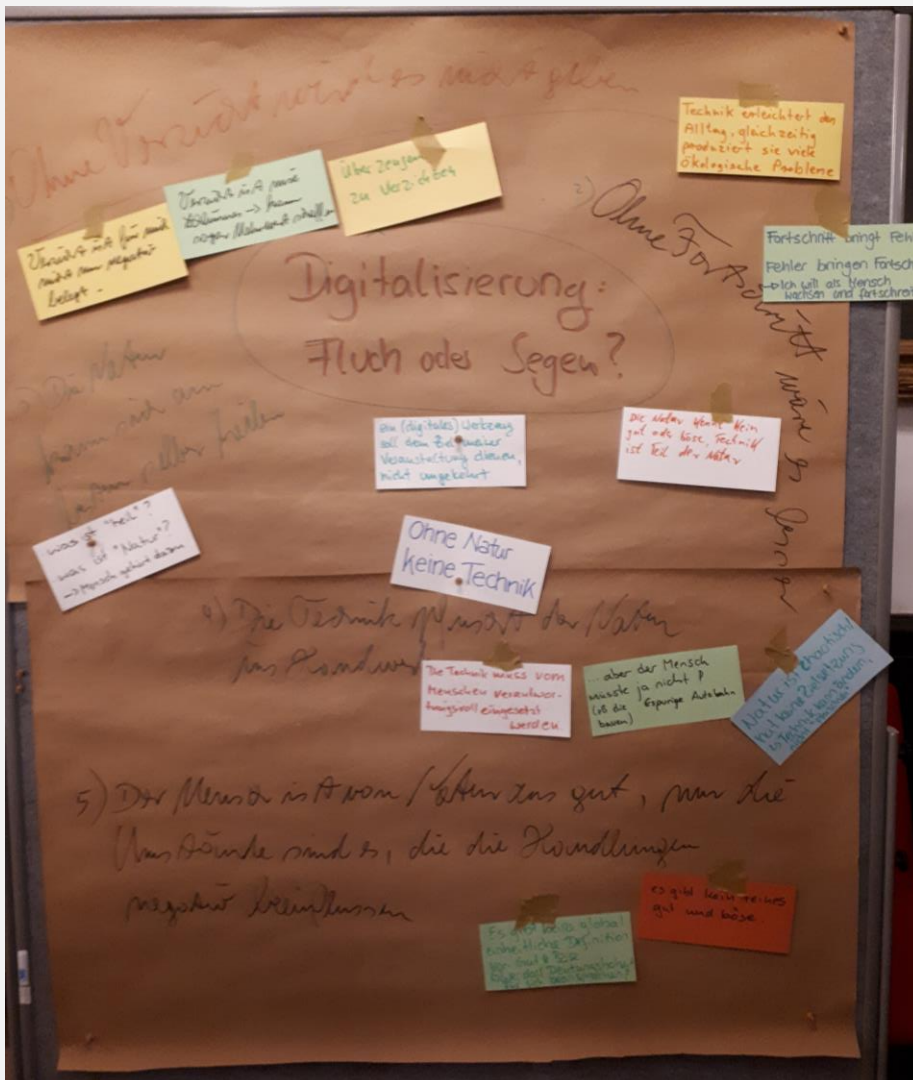 Ohne Verzicht wird es nicht gehen
Technik erleichtert den
Alltag, gleichzeitig
produziert sie viele
ökologische Probleme
Verzicht ist für mich
nicht nur negativ
belegt.
Verzicht ist nur
sogar Mehrwert schaffen
überzeugen
zu verzichten
2) Ohne Fortschritt wäre es
Fortschritt bringt Feh
Fehler bringen Fortsch
→ Ich will als Mensch
wachsen und fortschrei
Digitalisierung:
Fluch oder Segen?
Die Natur
kann sich am
besten selber heilen
ein (digitales) Werkzeug
soll dem Ziel meiner
Veranstaltung dienen,
nicht umgekehrt
Die Natur kennt kein
gut oder böse. Technik
ist Teil der Natur
was ist "heil"?
was ist "Natur"?
→ Mensch gehört dazu
Ohne Natur
keine Technik
4) Die Technik pfuscht der Natur
ins Handwerk
Die Technik muss vom
Menschen verantwor-
tungsvoll eingesetzt
werden
... aber der Mensch
müsste ja nicht
(zB die 6spurige Autobahn
bauen)
Natur ist chaotisch/
hat keine Zielsetzung
5) Der Mensch ist von Natur aus gut, nur die
Umstände sind es, die die Handlungen
negativ beeinflussen
es gibt kein reines
gut und böse.
Es gibt keine global
einheitliche Definition
von Gut & Böse